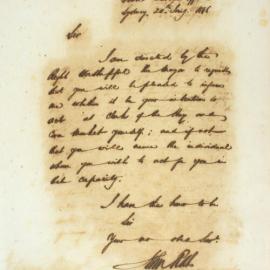 Sydney 20th Augt. 1846
Sir
I am directed by the
Right Worshipful the Mayor to request
that you will be pleased to inform
me whether it be your intention to
act as Clerk of the Hay and
Corn Market yourself; and if not
that you will name the individual
whom you wish to act for you in
that capacity.
I have the honor to be
Sir
Your mo obdt Servt